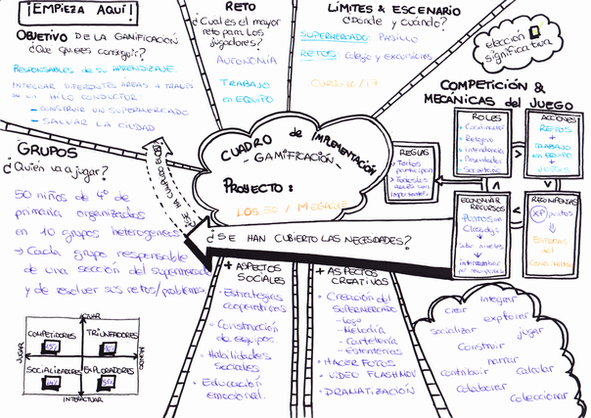 ¡EMPIEZA AQUÍ!
OBJETIVO DE LA GAMIFICACIÓN
¿Qué quieres conseguir?
RESPONSABLES de su APRENDIZAJE.
INTEGRAR DIFERENTES ÁREAS A TRAVÉS
DE UN HILO CONDUCTOR:
- CONSTRUIR UN SUPERMERCADO
- SALVAR LA CIUDAD
RETO
¿Cuál es el mayor
reto para los
jugadores?
AUTONOMÍA
TRABAJO
en EQUIPO
LÍMITES & ESCENARIO
¿Dónde y Cuándo?
SUPERMERCADO: Pasillo
RETOS: Colegio y excursiones
CURSO 16/17
elección
significativa
COMPETICIÓN &
MECÁNICAS del JUEGO
ROLES
• Coordinador
• Secretario
ACCIONES
RETOS
+
TRABAJO
en
EQUIPO
+
REGLAS
• Todos
participan
importante.
ECONOMÍA
RECURSOS
PUNTOS
RECOMPENSAS
XP puntos
CUADRO de IMPLEMENTACIÓN
- GAMIFICACIÓN -
PROYECTO:
LOS 50 /
GRUPOS
¿Quién va a jugar?
50 niños de 4º de
primaria organizados
en 10 grupos heterogéneos
→ Cada grupo responsable
de una sección del supermercado
y de resolver sus retos/problemas
¿SE HAN CUBIERTO LAS NECESIDADES?
+ ASPECTOS
SOCIALES
• Estrategias
cooperativas
• Construcción
de equipos.
• Habilidades
sociales
• Educación
emocional.
+ ASPECTOS
CREATIVOS
• CREACIÓN del
SUPERMERCADO
- Logo
- Melodía
- Cartelería
- Estanterías
• HACER FOTOS
• VIDEO FLASHMOV
• DRAMATIZACIÓN
crear
integrar
explorar
socializar
jugar
construir
narrar
contribuir
calcular
colaborar
coleccionar
ACTUAR
COMPETIDORES
TRIUNFADORES
JUGAR
MUNDO
SOCIALIZADORES
EXPLORADORES
INTERACTUAR